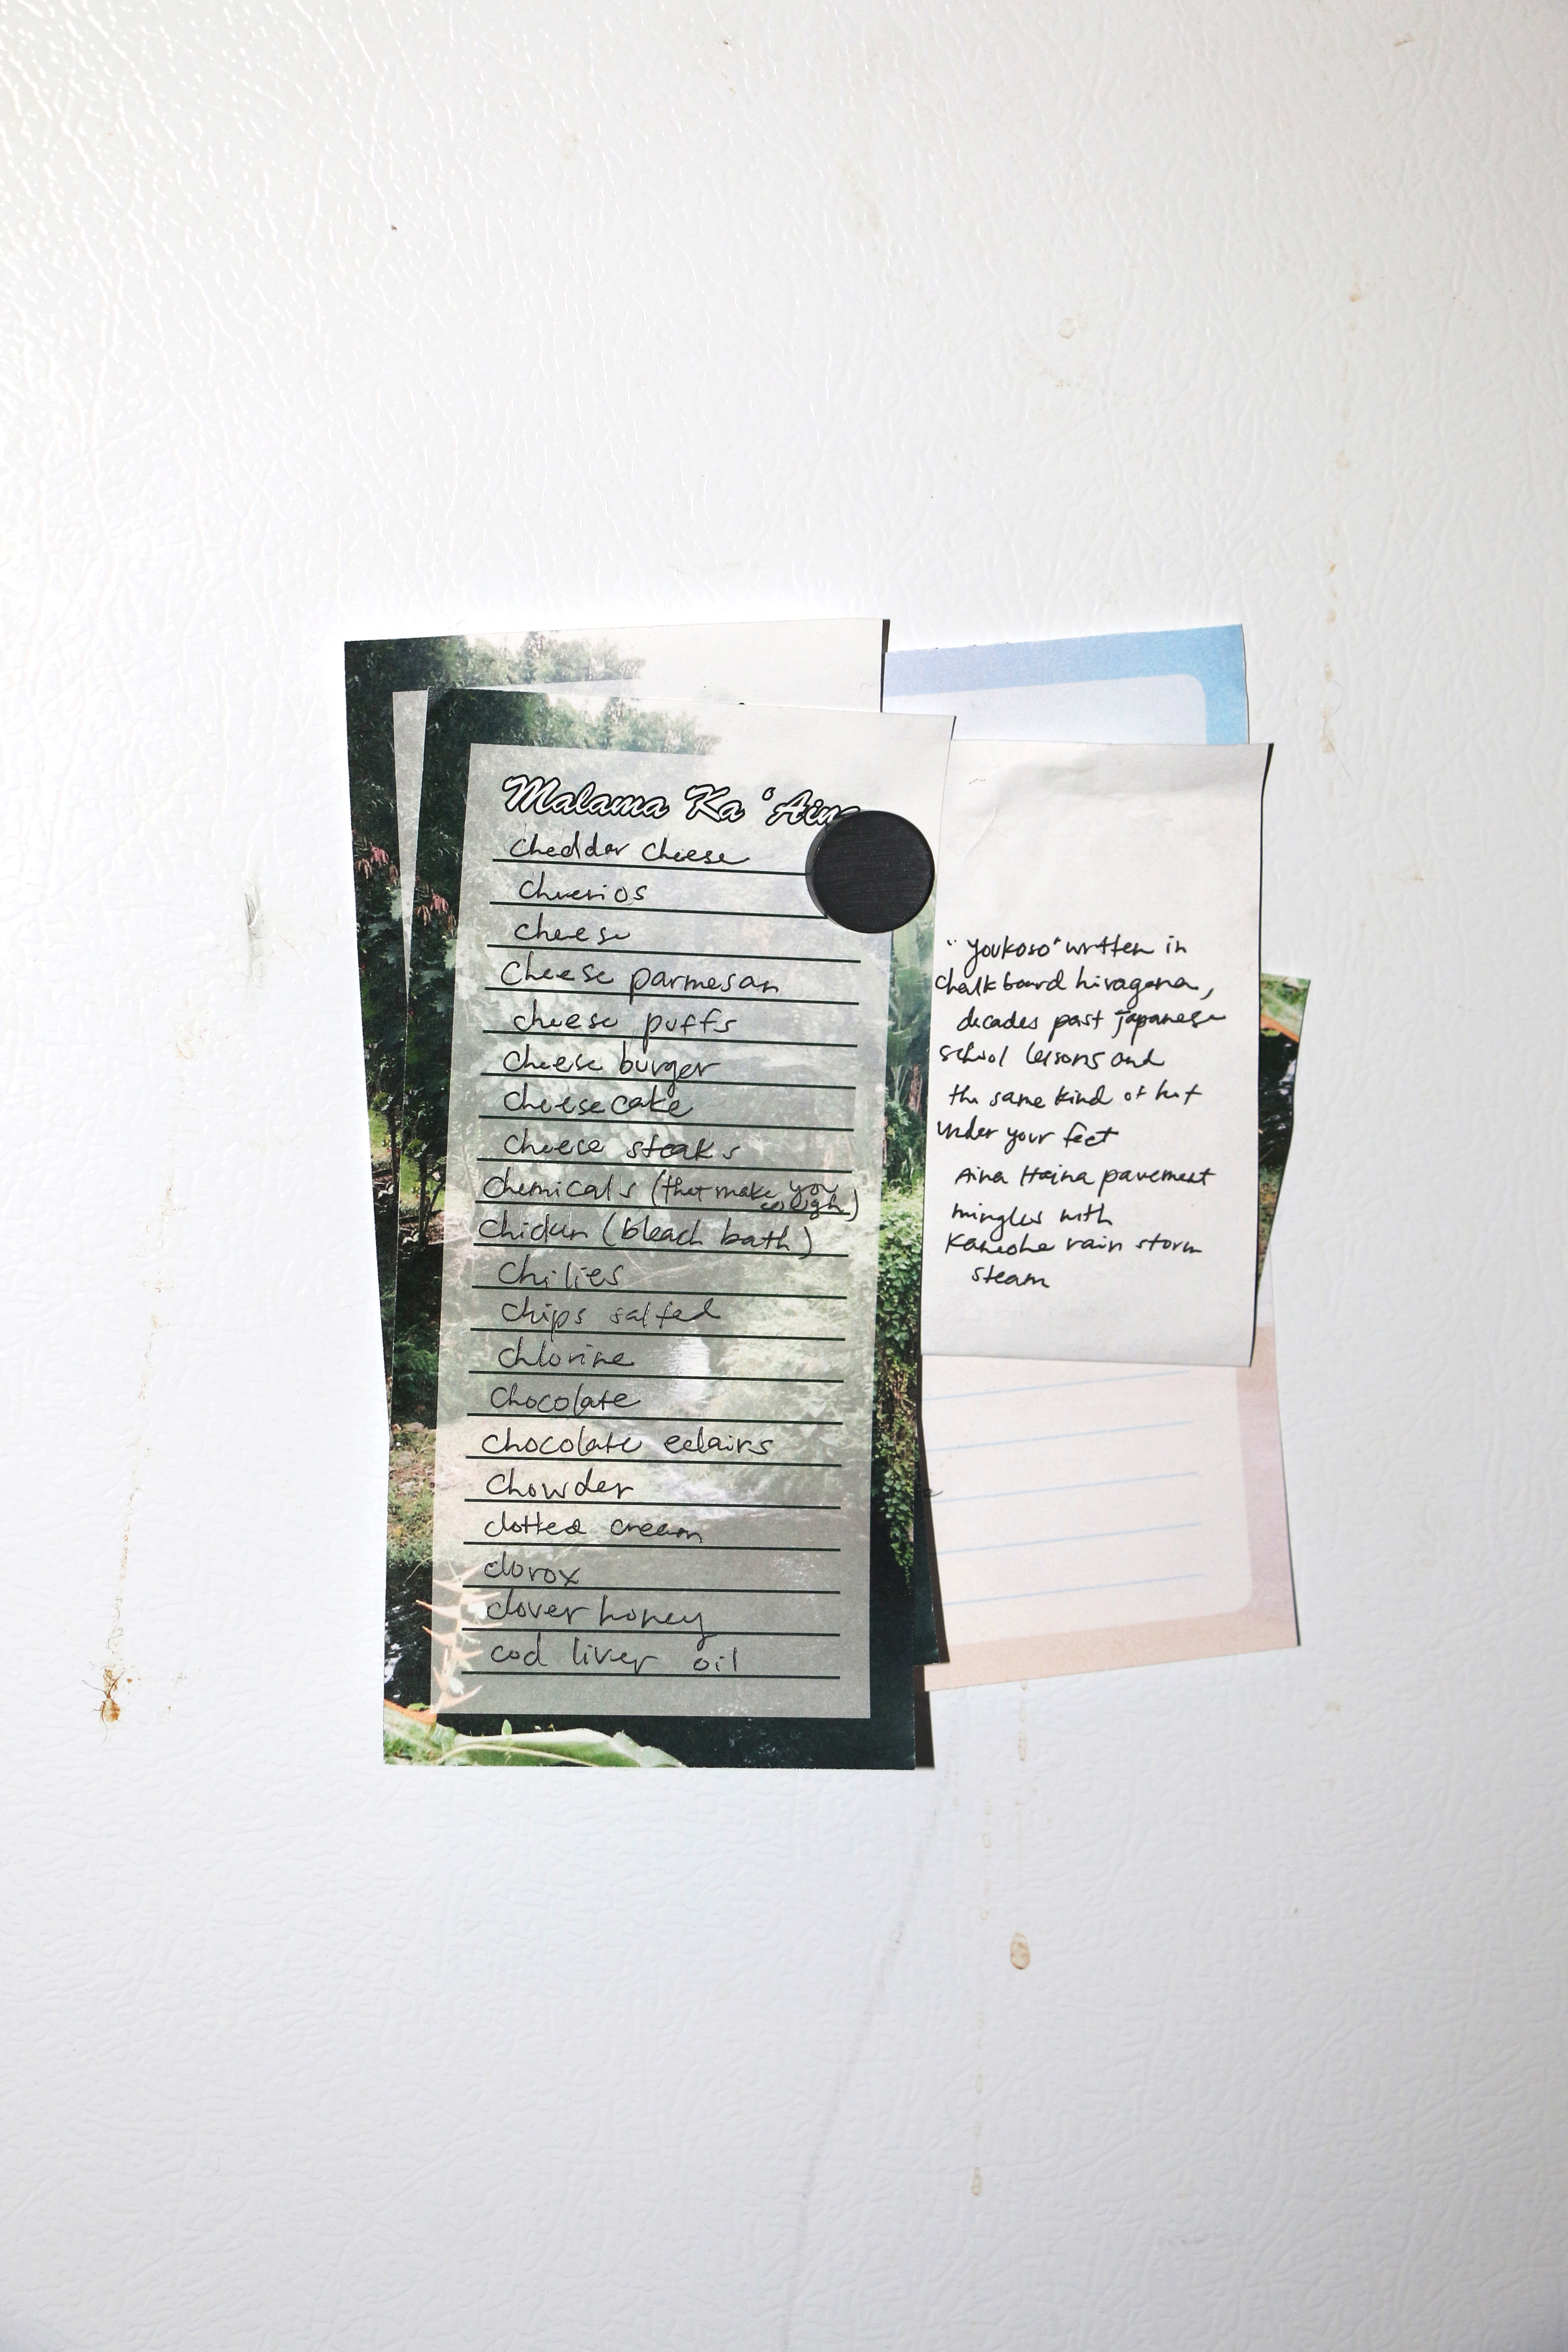 Malama Ka ʻAina
cheddar cheese
cheerios
cheese
cheese parmesan
cheese puffs
cheese burger
cheesecake
cheese steaks
chemicals (that make you cough)
chicken (bleach bath)
chilies
chips salted
chlorine
chocolate
chocolate eclairs
chowder
clotted cream
clorox
clover honey
cod liver oil
"youkoso" written in
chalkboard hiragana,
decades past japanese
school lessons and
the same kind of hot
under your feet
Aina Haina pavement
mingles with
Kaneohe rain storm
steam